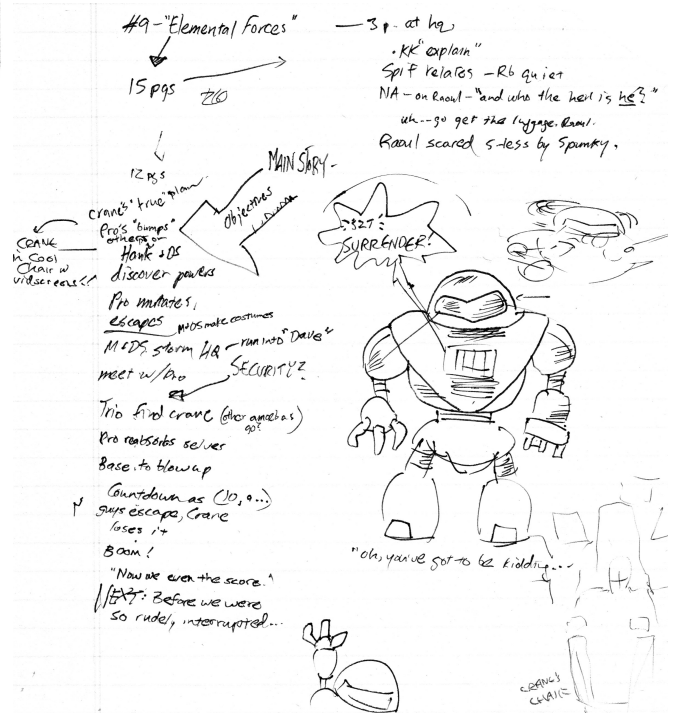 #9 - "Elemental Forces"
15 pgs
3 p. at hq
• KK "explain"
Spif relates - Rb quiet
NA - on Raoul - "and who the hell is he?"
uh -- go get the luggage, Raoul.
Raoul scared s-less by Spunky.
12 pgs
MAIN STORY -
Objectives
Crane's "true" plan
Pro's "bumps"
others or
Hank & DS
discover powers
CRANE
in Cool
Chair w
vidscreens!!
Pro mutates,
escapes
M&DS make costumes
M&DS storm HQ - run into "Dave"
meet w/Pro
SECURITY?
Trio find crane (other amoebas go?)
Pro reabsorbs selves
Base to blow up
Countdown as (10, 9...)
guys escape, Crane
loses it
Boom!
"Now we even the score."
NEXT: Before we were
so rudely interrupted...
:SZT:
SURRENDER!
"Oh, you've got to be kidding...
CRANE'S
CHAIR